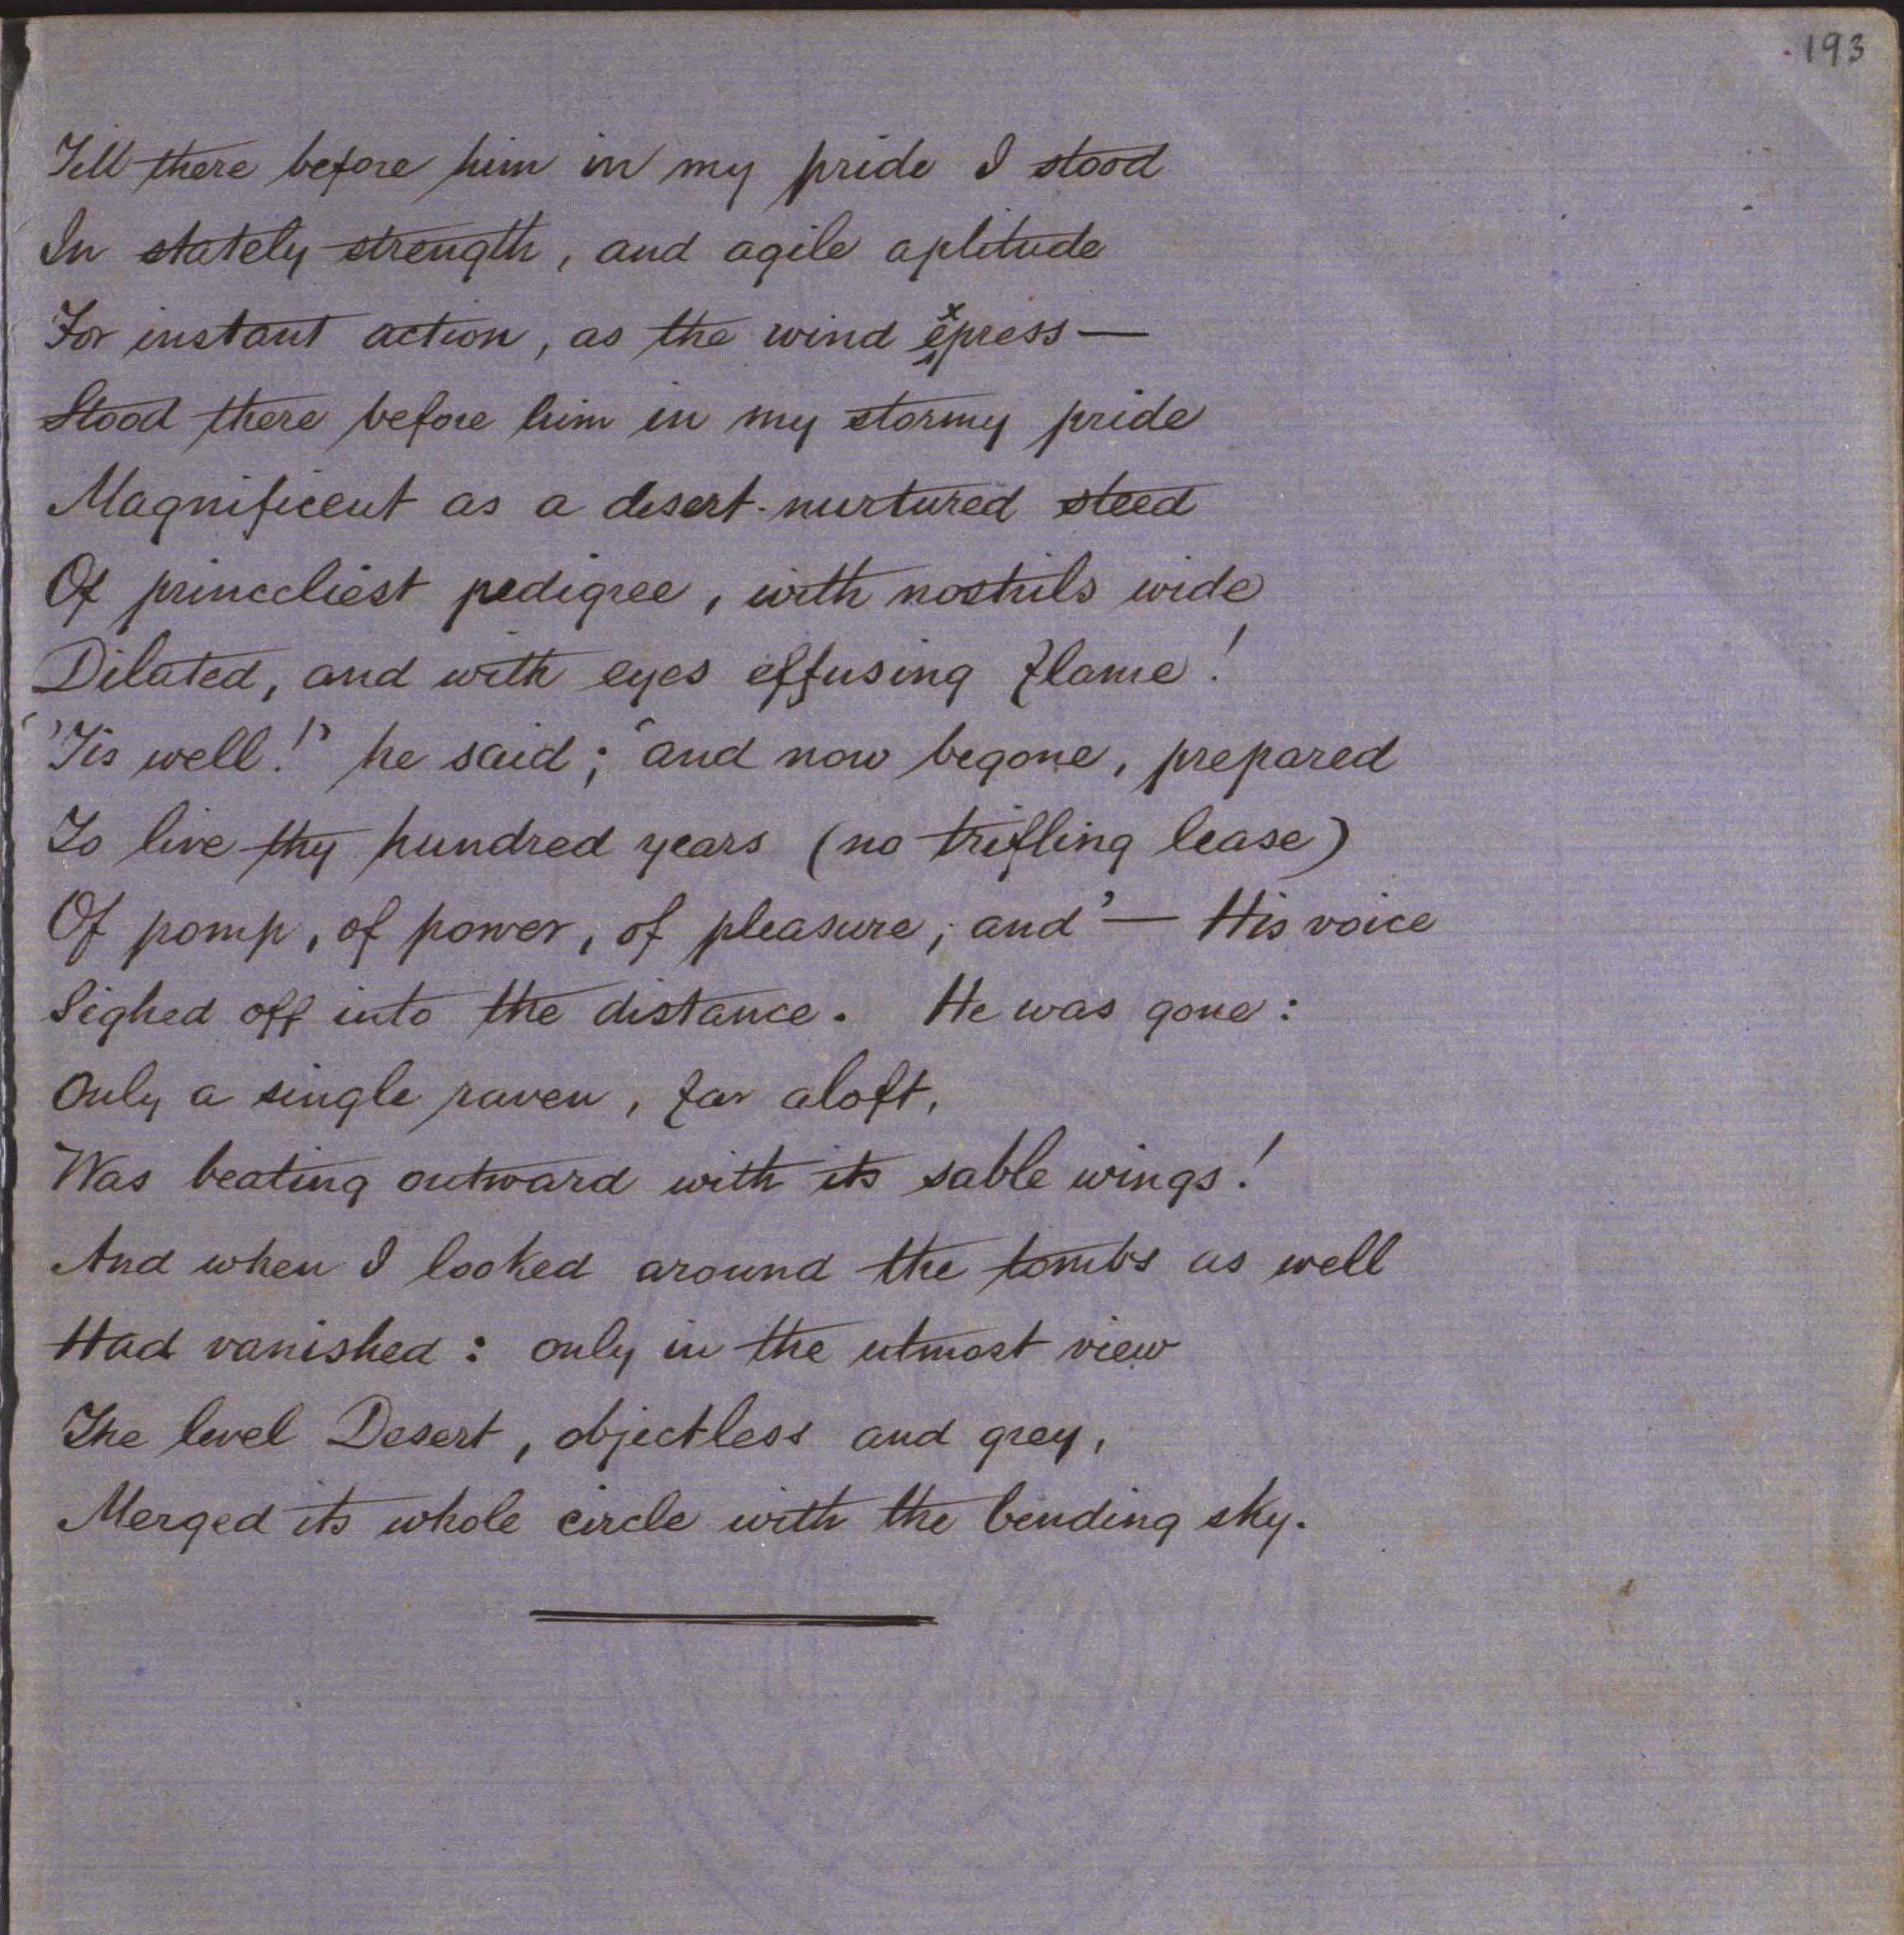 193
Till there before him in my pride I stood
In stately strength, and agile aptitude
For instant action, as the wind express—
Stood there before him in my stormy pride
Magnificent as a desert-nurtured steed
Of princeliest pedigree, with nostrils wide
Dilated, and with eyes effusing flame!
"'Tis well!" he said; "and now begone, prepared
To live thy hundred years (no trifling lease)
Of pomp, of power, of pleasure; and"— His voice
Sighed off into the distance. He was gone:
Only a single raven, far aloft,
Was beating outward with its sable wings!
And when I looked around the tombs as well
Had vanished: only in the utmost view
The level Desert, objectless and grey,
Merged its whole circle with the bending sky.